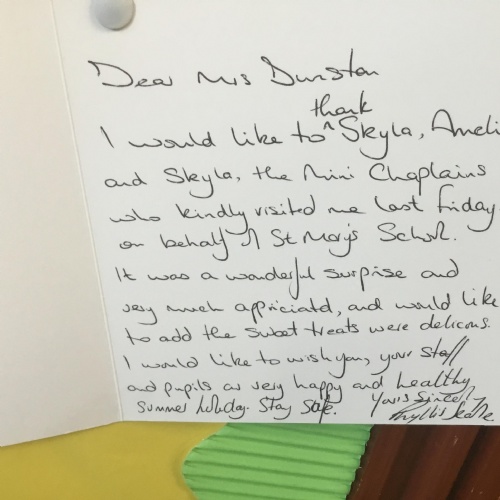 Dear Mrs Dunstan
thank
I would like to ^ Skyla, Ameli
and Skyla, the Mini Chaplains
who kindly visited me last friday
on behalf of St Mary's School.
It was a wonderful surprise and
very much appriciatd, and would like
to add the sweet treats were delicous.
I would like to wish you, your staff
and pupils a very happy and healthy
Summer holiday. Stay Safe. Yours Sincerly
Phyllis